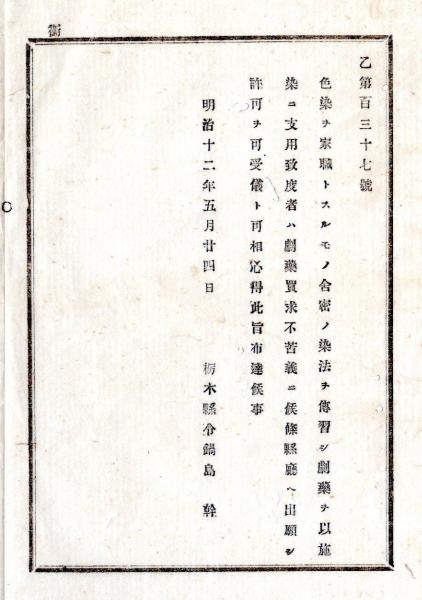 衛
乙第百三十七號
色染ヲ家職トスルモノ舍密ノ染法ヲ傳習シ劇藥ヲ以施
染ニ支用致度者ハ劇藥買求不苦義ニ候條縣廳ヘ出願シ
許可ヲ可受儀ト可相心得此旨布達候事
明治十二年五月廿四日
栃木縣令鍋島 幹